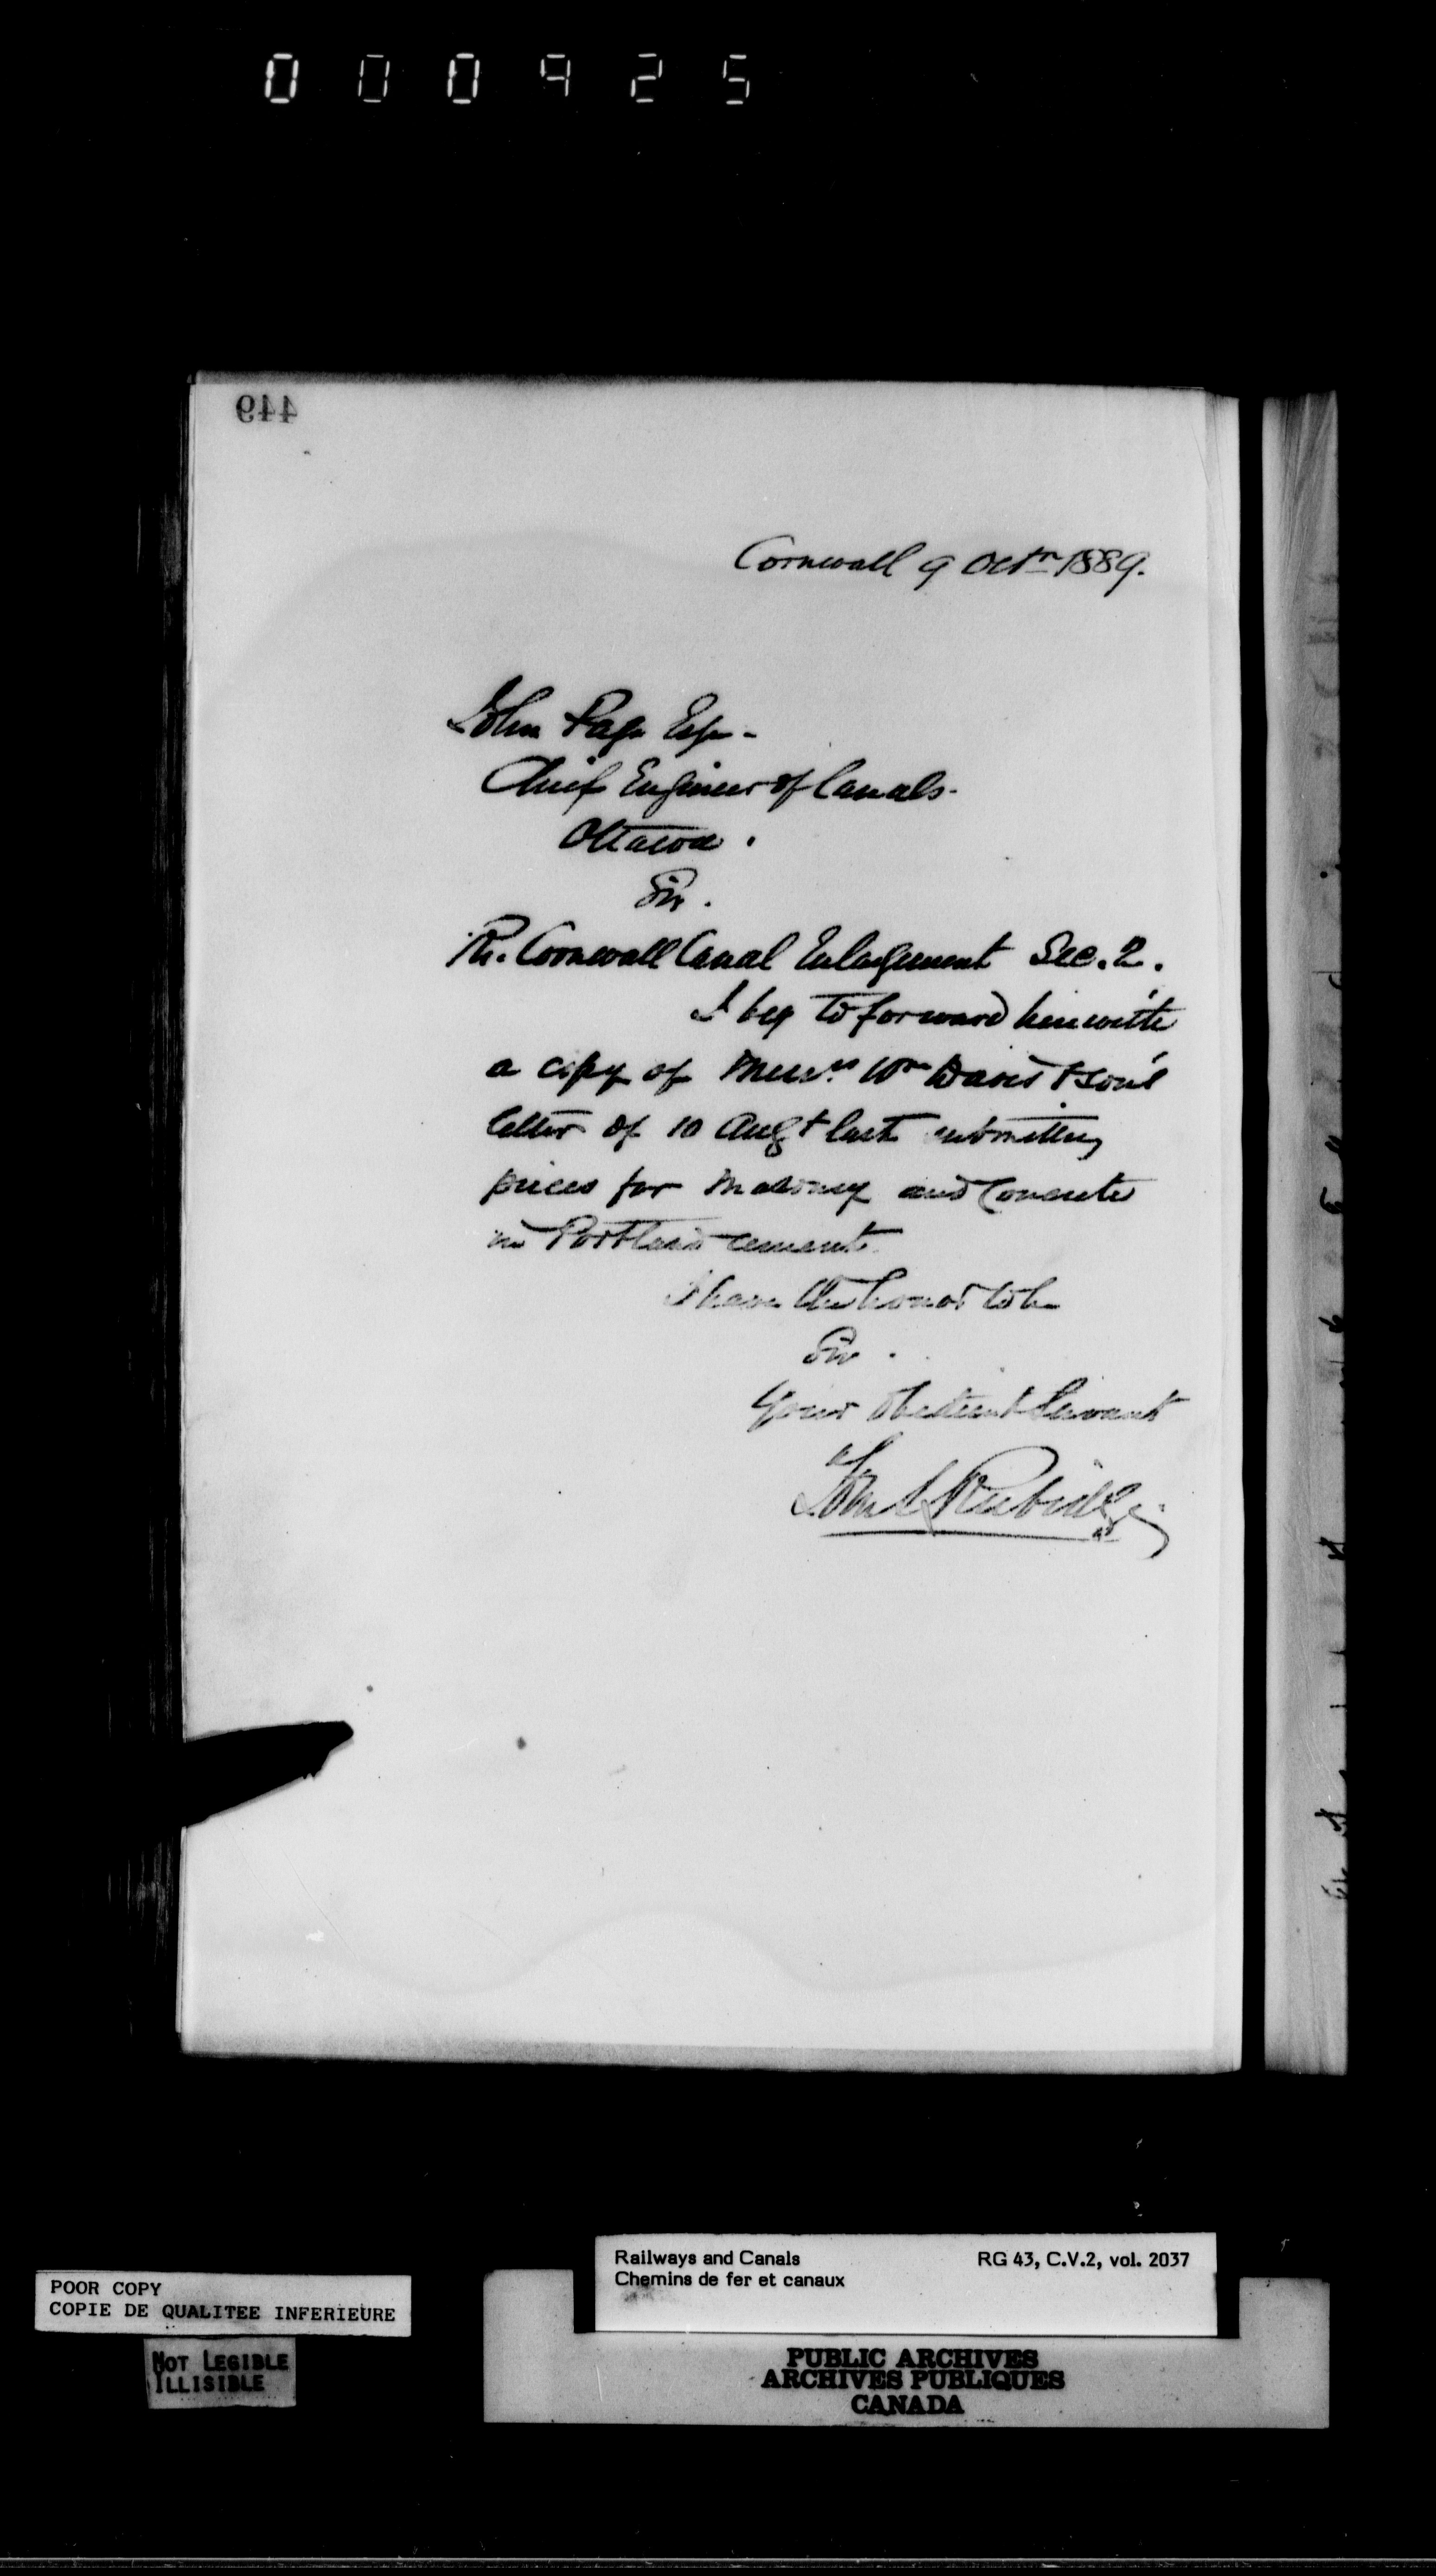 000925
449
Cornwall 9 Octr 1889.
John Page Esqr -
Chief Engineer of Canals -
Ottawa.
Sir.
Re. Cornwall Canal Enlargement Sec. 2.
I beg to forward herewith
a copy of Messrs. Wm Davis & Sons
letter of 10 Augt last submitting
prices for Masonry and Concrete
in Portland cement.
I have the honor to be
Sir.
Your Obedient Servant
Rubidge
Railways and Canals RG 43, C.V.2, vol. 2037
Chemins de fer et canaux
POOR COPY
COPIE DE QUALITEE INFERIEURE
NOT LEGIBLE
ILLISIBLE
PUBLIC ARCHIVES
ARCHIVES PUBLIQUES
CANADA